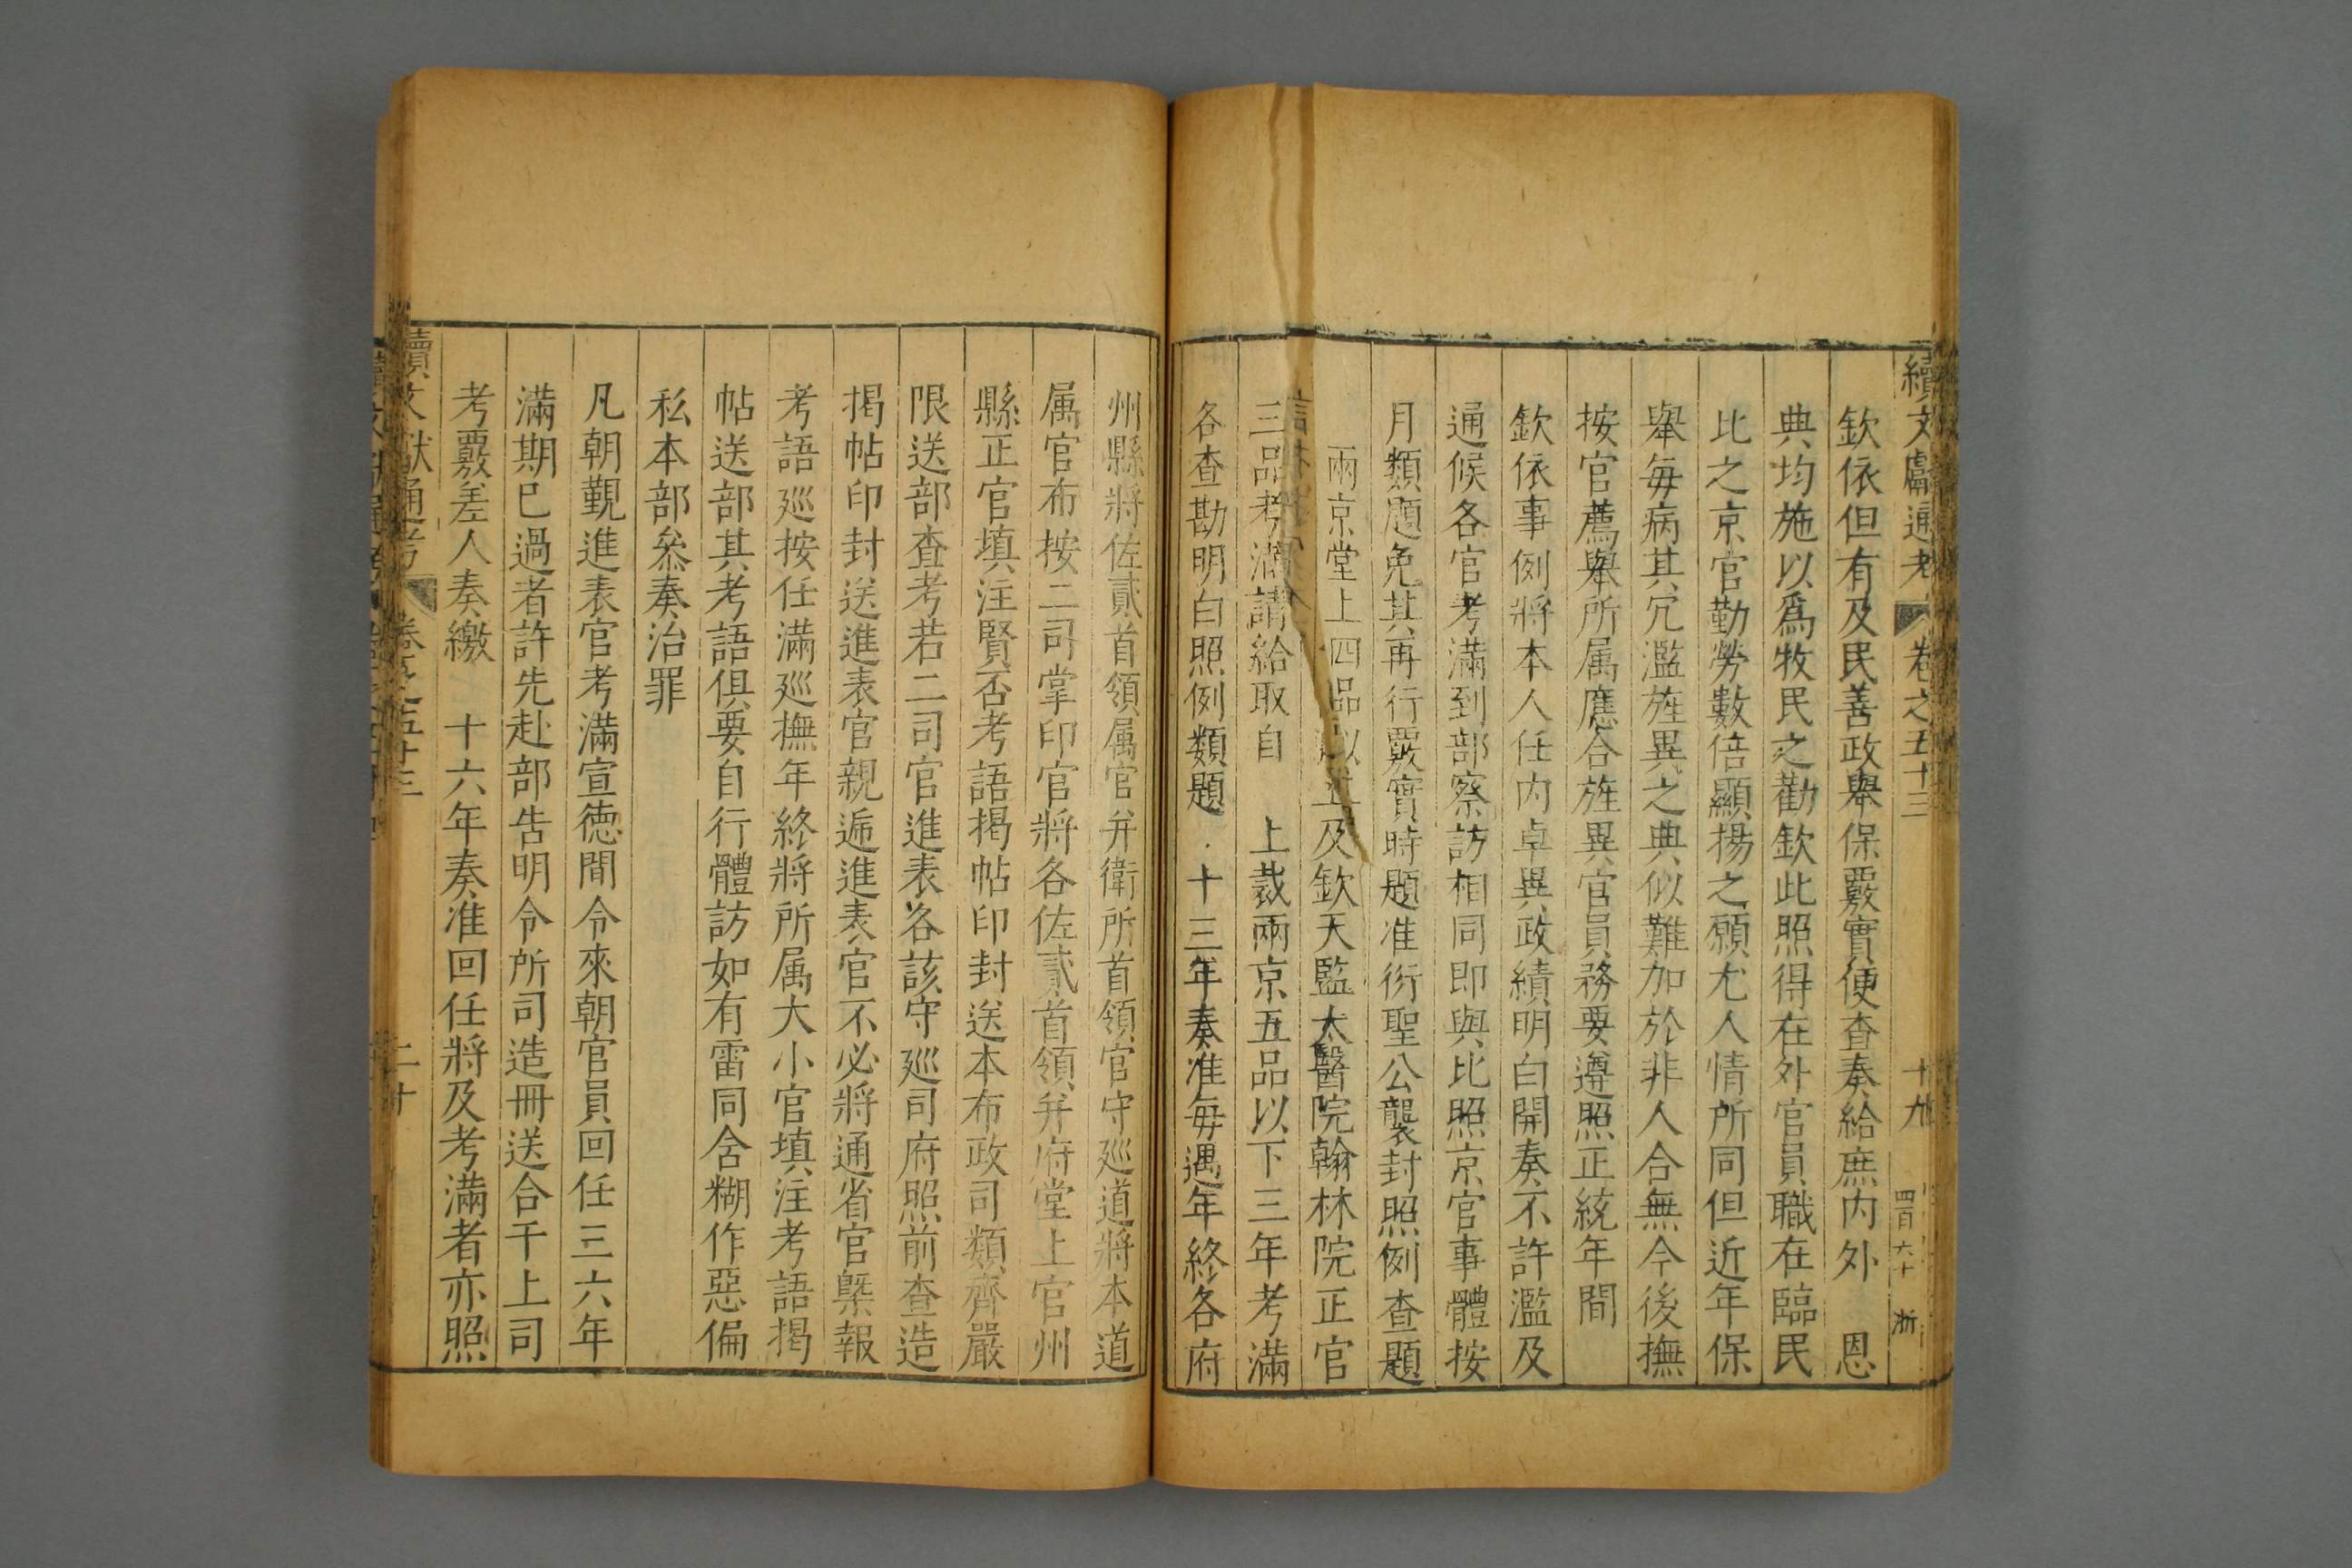 續文獻通考 卷之五十三 十九 四百六十 浙
欽依但有及民善政舉保覈實便查奏給庶内外 恩
典均施以爲牧民之勸欽此照得在外官員職在臨民
比之京官勤勞數倍顯揚之願尤人情所同但近年保
舉每病其冗濫旌異之典似難加於非人合無今後撫
按官薦舉所属應合旌異官員務要遵照正統年間
欽依事例將本人任内卓異政績明白開奏不許濫及
通候各官考滿到部察訪相同即與比照京官事體按
月類題免其再行覈實時題准衍聖公襲封照例查題
兩京堂上四品以上及欽天監太醫院翰林院正官
三品考滿請給取自 上裁兩京五品以下三年考滿
各查勘明白照例類題 十三年奏准每遇年終各府
州縣將佐貳首領属官并衛所首領官守廵道將本道
属官布按二司掌印官將各佐貳首領并府堂上官州
縣正官填注賢否考語揭帖印封送本布政司類齊嚴
限送部查考若二司官進表各該守廵司府照前查造
揭帖印封送進表官親逓進表官不必將通省官槩報
考語廵按任滿廵撫年終將所属大小官填注考語揭
帖送部其考語俱要自行體訪如有雷同含糊作惡偏
私本部叅奏治罪
凡朝覲進表官考滿宣徳間令來朝官員回任三六年
滿期已過者許先赴部告明令所司造冊送合干上司
考覈差人奏繳 十六年奏准回任將及考滿者亦照
續文獻通考 卷之五十三 二十